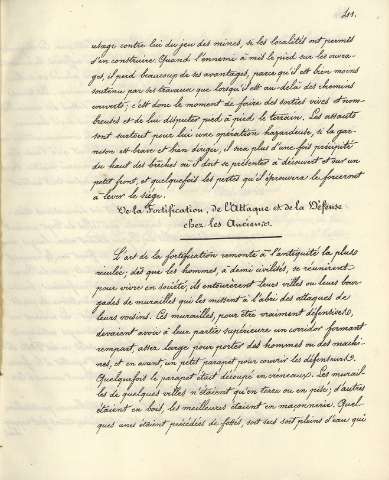 411.
usage contre lui du jeu des mines, si les localités ont permis
d'en construire. Quand l'ennemi a mis le pied sur les ouvra-
ges, il perd beaucoup de ses avantages, parce qu'il est bien moins
soutenu par ses travaux que lorsqu'il est au-delà des chemins
couverts; c'est donc le moment de faire des sorties vives et nom-
breuses et de lui disputer pied à pied le terrain. Les assauts
sont surtout pour lui une opération hazardeuse, si la gar-
nison est brave et bien dirigée, il sera plus d'une fois précipité
du haut des brêches où il doit se présenter à découvert et sur un
petit front, et quelquefois les pertes qu'il éprouvera le forceront
à lever le siège.
De la Fortification, de l'Attaque et de la Défense
chez les Anciens.
L'art de la fortification remonte à l'antiquité la plus
reculée; dès que les hommes, à demi civilisés, se réunirent
pour vivre en société, ils entourèrent leurs villes ou leurs bour-
gades de murailles qui les missent à l'abri des attaques de
leurs voisins. Ces murailles, pour être vraiment défensives,
devaient avoir à leur partie supérieure un corridor formant
rempart, assez large pour porter des hommes ou des machi-
nes, et en avant, un petit parapet pour couvrir les défenseurs.
Quelquefois le parapet était découpé en créneaux. Les murail-
les de quelques villes n'étaient qu'en terre ou en pisé; d'autres
étaient en bois, les meilleures étaient en maçonnerie. Quel-
ques unes étaient précédées de fossés, soit secs soit pleins d'eau qui